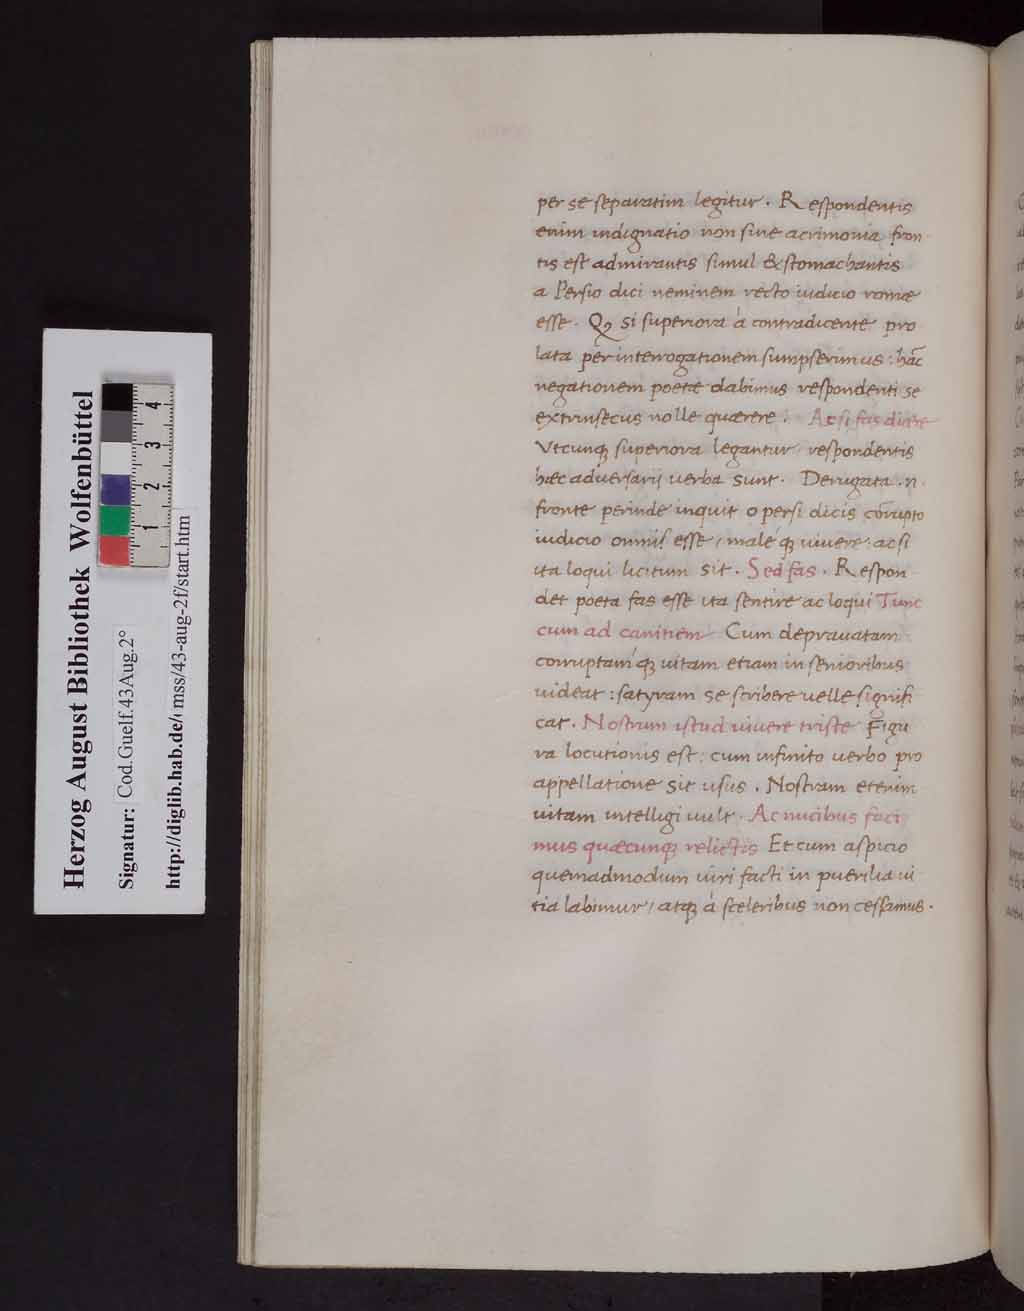 Herzog August Bibliothek Wolfenbüttel
Signatur: Cod.Guelf.43Aug.2°
http://diglib.hab.de/ mss/43-aug-2f/start.htm
1 2 3 4
per se separatim legitur. Respondentis
enim indignatio non sine acrimonia fron
tis est admirantis simul & stomachantis
a Persio dici neminem recto iudicio romæ
esse. Qꝫ si superiora á contradicente pro
lata per interrogationem sumpserimus: hãc
negationem poetæ dabimus respondenti se
extrinsecus nolle quærere: Ac si fas dicere
Vtcunqꝫ superiora legantur, respondentis
hæc aduersarij uerba sunt. Derugata .n.
fronte perinde inquit o persi dicis corrupto
iudicio omnis esse, male qꝫ uiuere: ac si
ita loqui licitum sit. Sed fas. Respon
det poeta fas esse ita sentire ac loqui Tunc
cum ad canitiem Cum deprauatam
corruptam qꝫ uitam etiam in senioribus
uideat: satyram se scribere uelle signifi
cat. Nostrum istud uiuere triste Figu
ra locutionis est: cum infinito uerbo pro
appellatione sit usus. Nostram etenim
uitam intelligi uult. Ac nucibus faci
mus quæcunqꝫ relictis Et cum aspicio
quemadmodum uiri facti in puerilia ui
tia labimur, atqꝫ á sceleribus non cessamus.